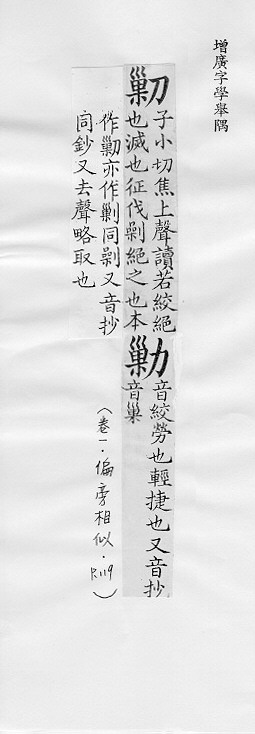 增廣字學舉隅
𠞰
子小切焦上聲讀若絞絕
也滅也征伐絕之也本
作亦作剿同又音抄
同鈔又去聲略取也
勦
音絞勞也輕捷也又音抄
音巢
（卷一．偏旁相似．P.119）